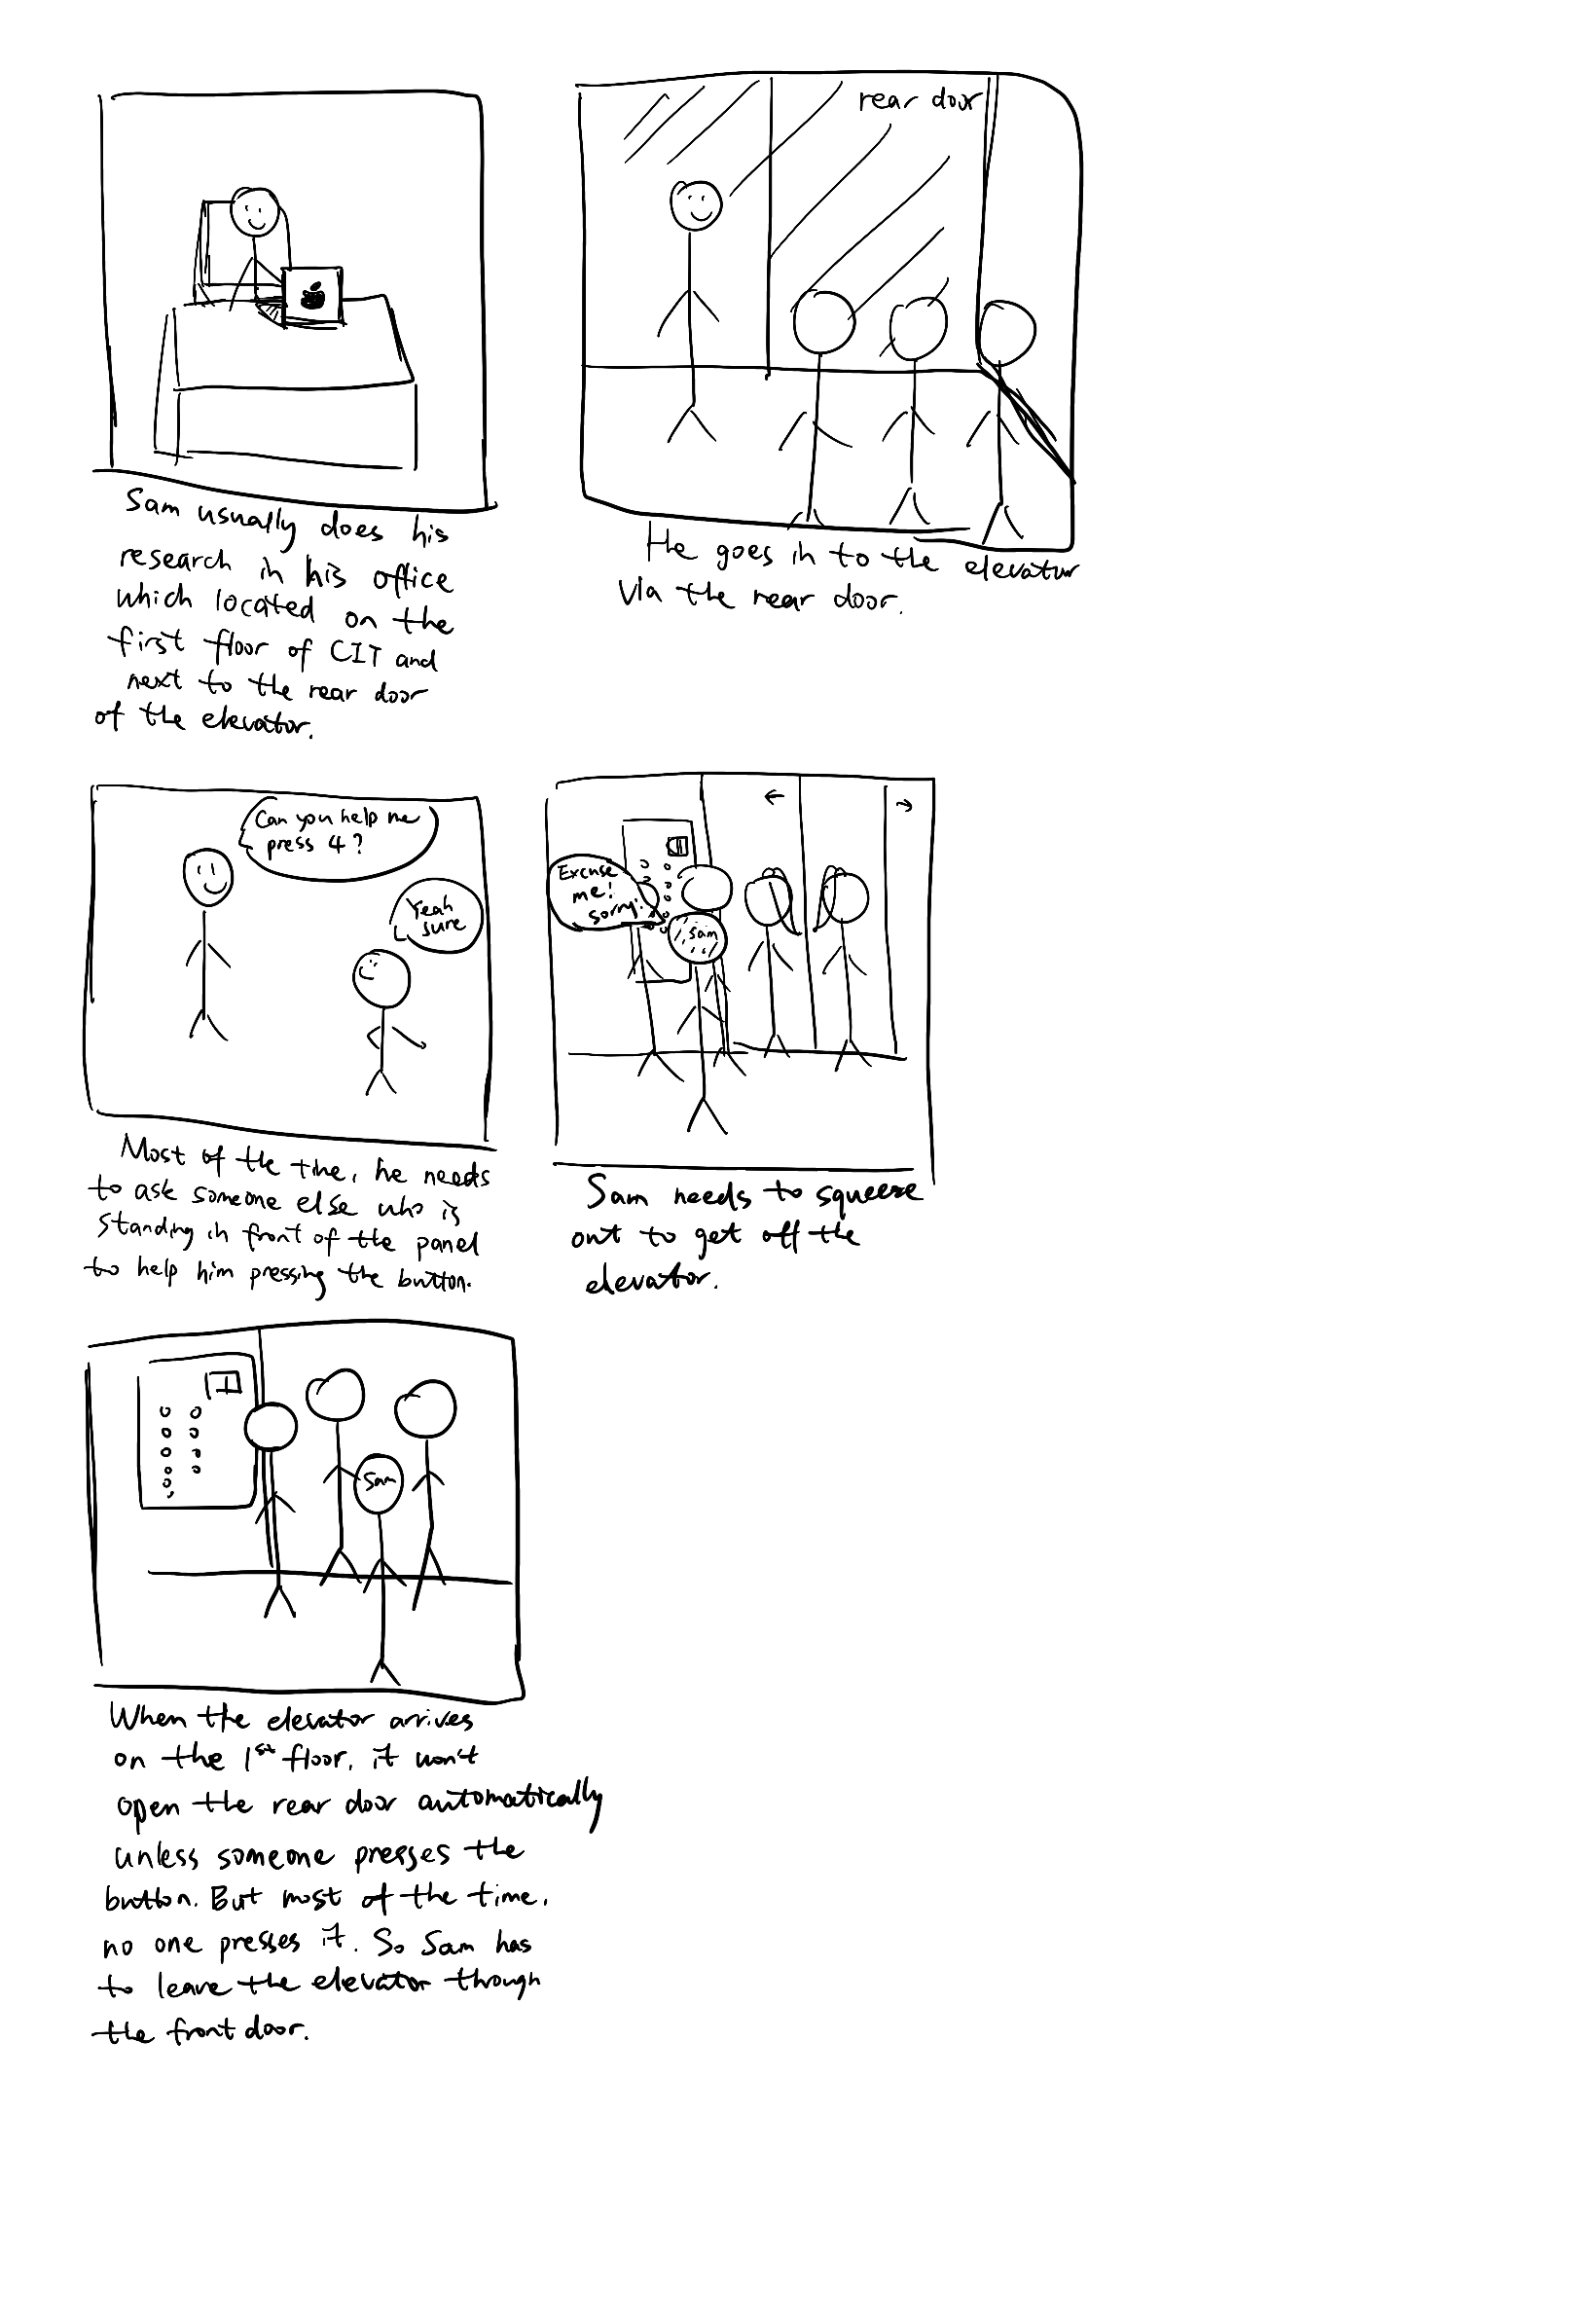 Sam usually does his
research in his office
which located on the
first floor of CIT and
next to the rear door
of the elevator.
rear door
He goes in to the elevator
via the rear door.
Can you help me
press 4?
Yeah
sure
Most of the time, he needs
to ask someone else who is
standing in front of the panel
to help him pressing the button.
← →
Excuse
me!
sorry!
Sam
Sam needs to squeeze
out to get off the
elevator.
1
Sam
When the elevator arrives
on the 1st floor, it won't
open the rear door automatically
unless someone presses the
button. But most of the time,
no one presses it. So Sam has
to leave the elevator through
the front door.